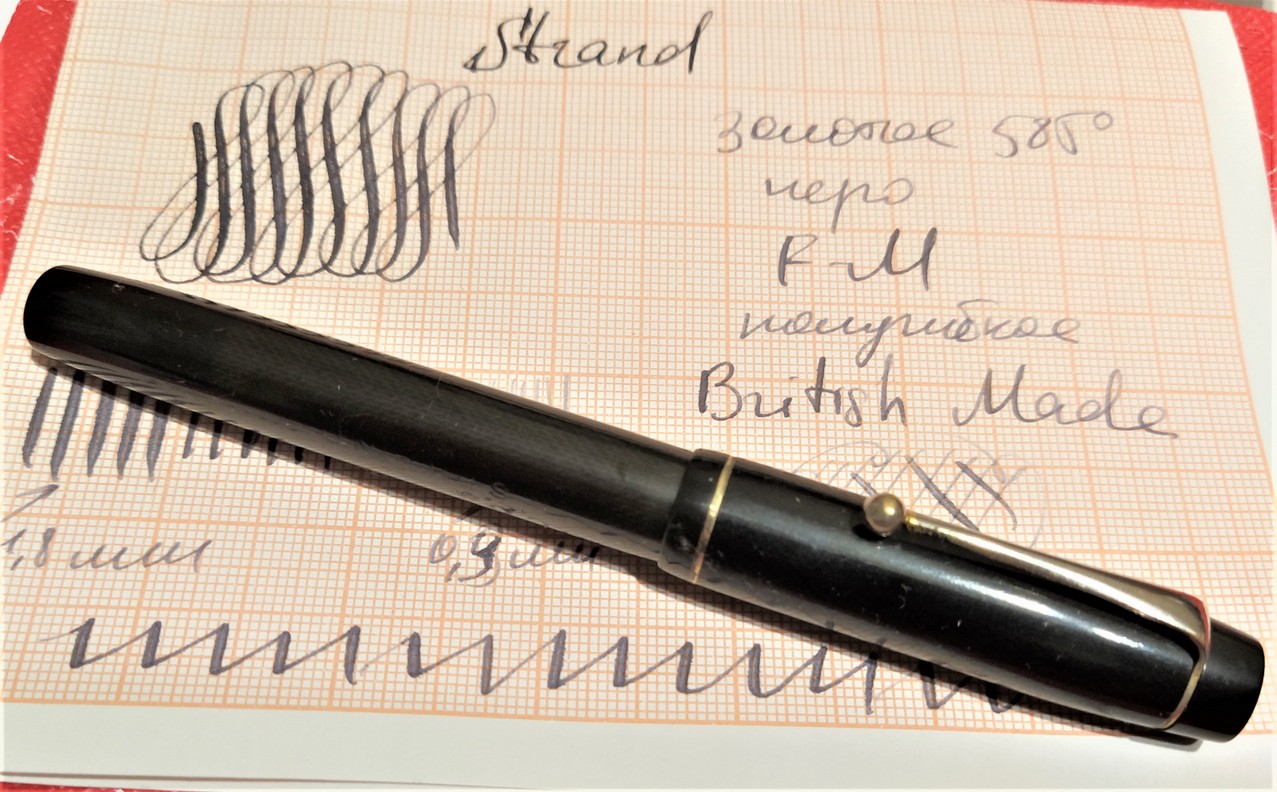 Strand
золотое 585°
перо
F-M
полугибкое
British Made
1,8 мм
0,9 мм